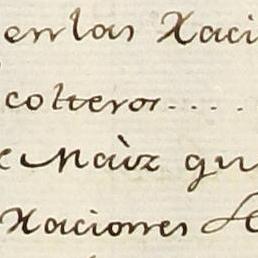 en las Naci
colteros....
e Maiz qu
Naciones de